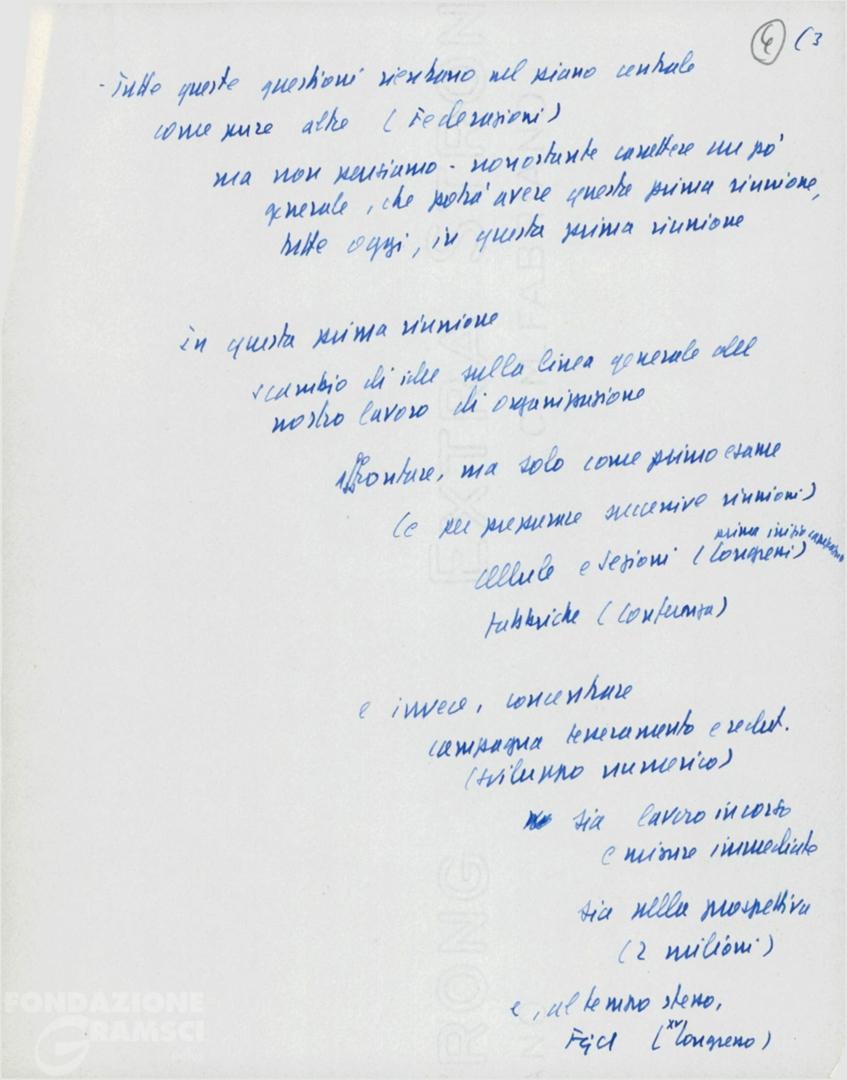 4 (3
- Tutte queste questioni rientrano nel piano centrale
come pure altre (Federazioni)
ma non pensiamo - nonostante carattere un pò
generale, che potrà avere questa prima riunione,
tutte oggi, in questa prima riunione
in questa prima riunione
scambio di idee sulla linea generale del
nostro lavoro di organizzazione
affrontare, ma solo come primo esame
(e per preparare successive riunioni)
prima inizio campagna
cellule e sezioni (Congressi)
Fabbriche (Conferenza)
e invece, concentrare
campagna tesseramento e reclut.
(sviluppo numerico)
sia lavoro in corso
e misure immediate
sia nella prospettiva
(2 milioni)
e, al tempo stesso,
FGCI (XV Congresso)
EXTRA STRONG
FABRIANO
FONDAZIONE
GRAMSCI